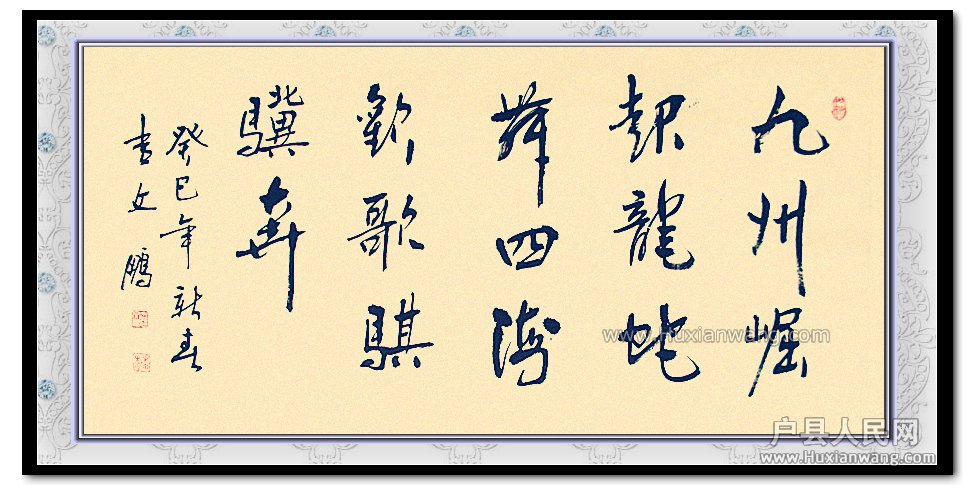 九州崛
起龍蛇
舞四海
歡歌騏
驥奔
癸巳年新春
书文鵬
www.Huxianwang.com
户县人民网
www.Huxianwang.com